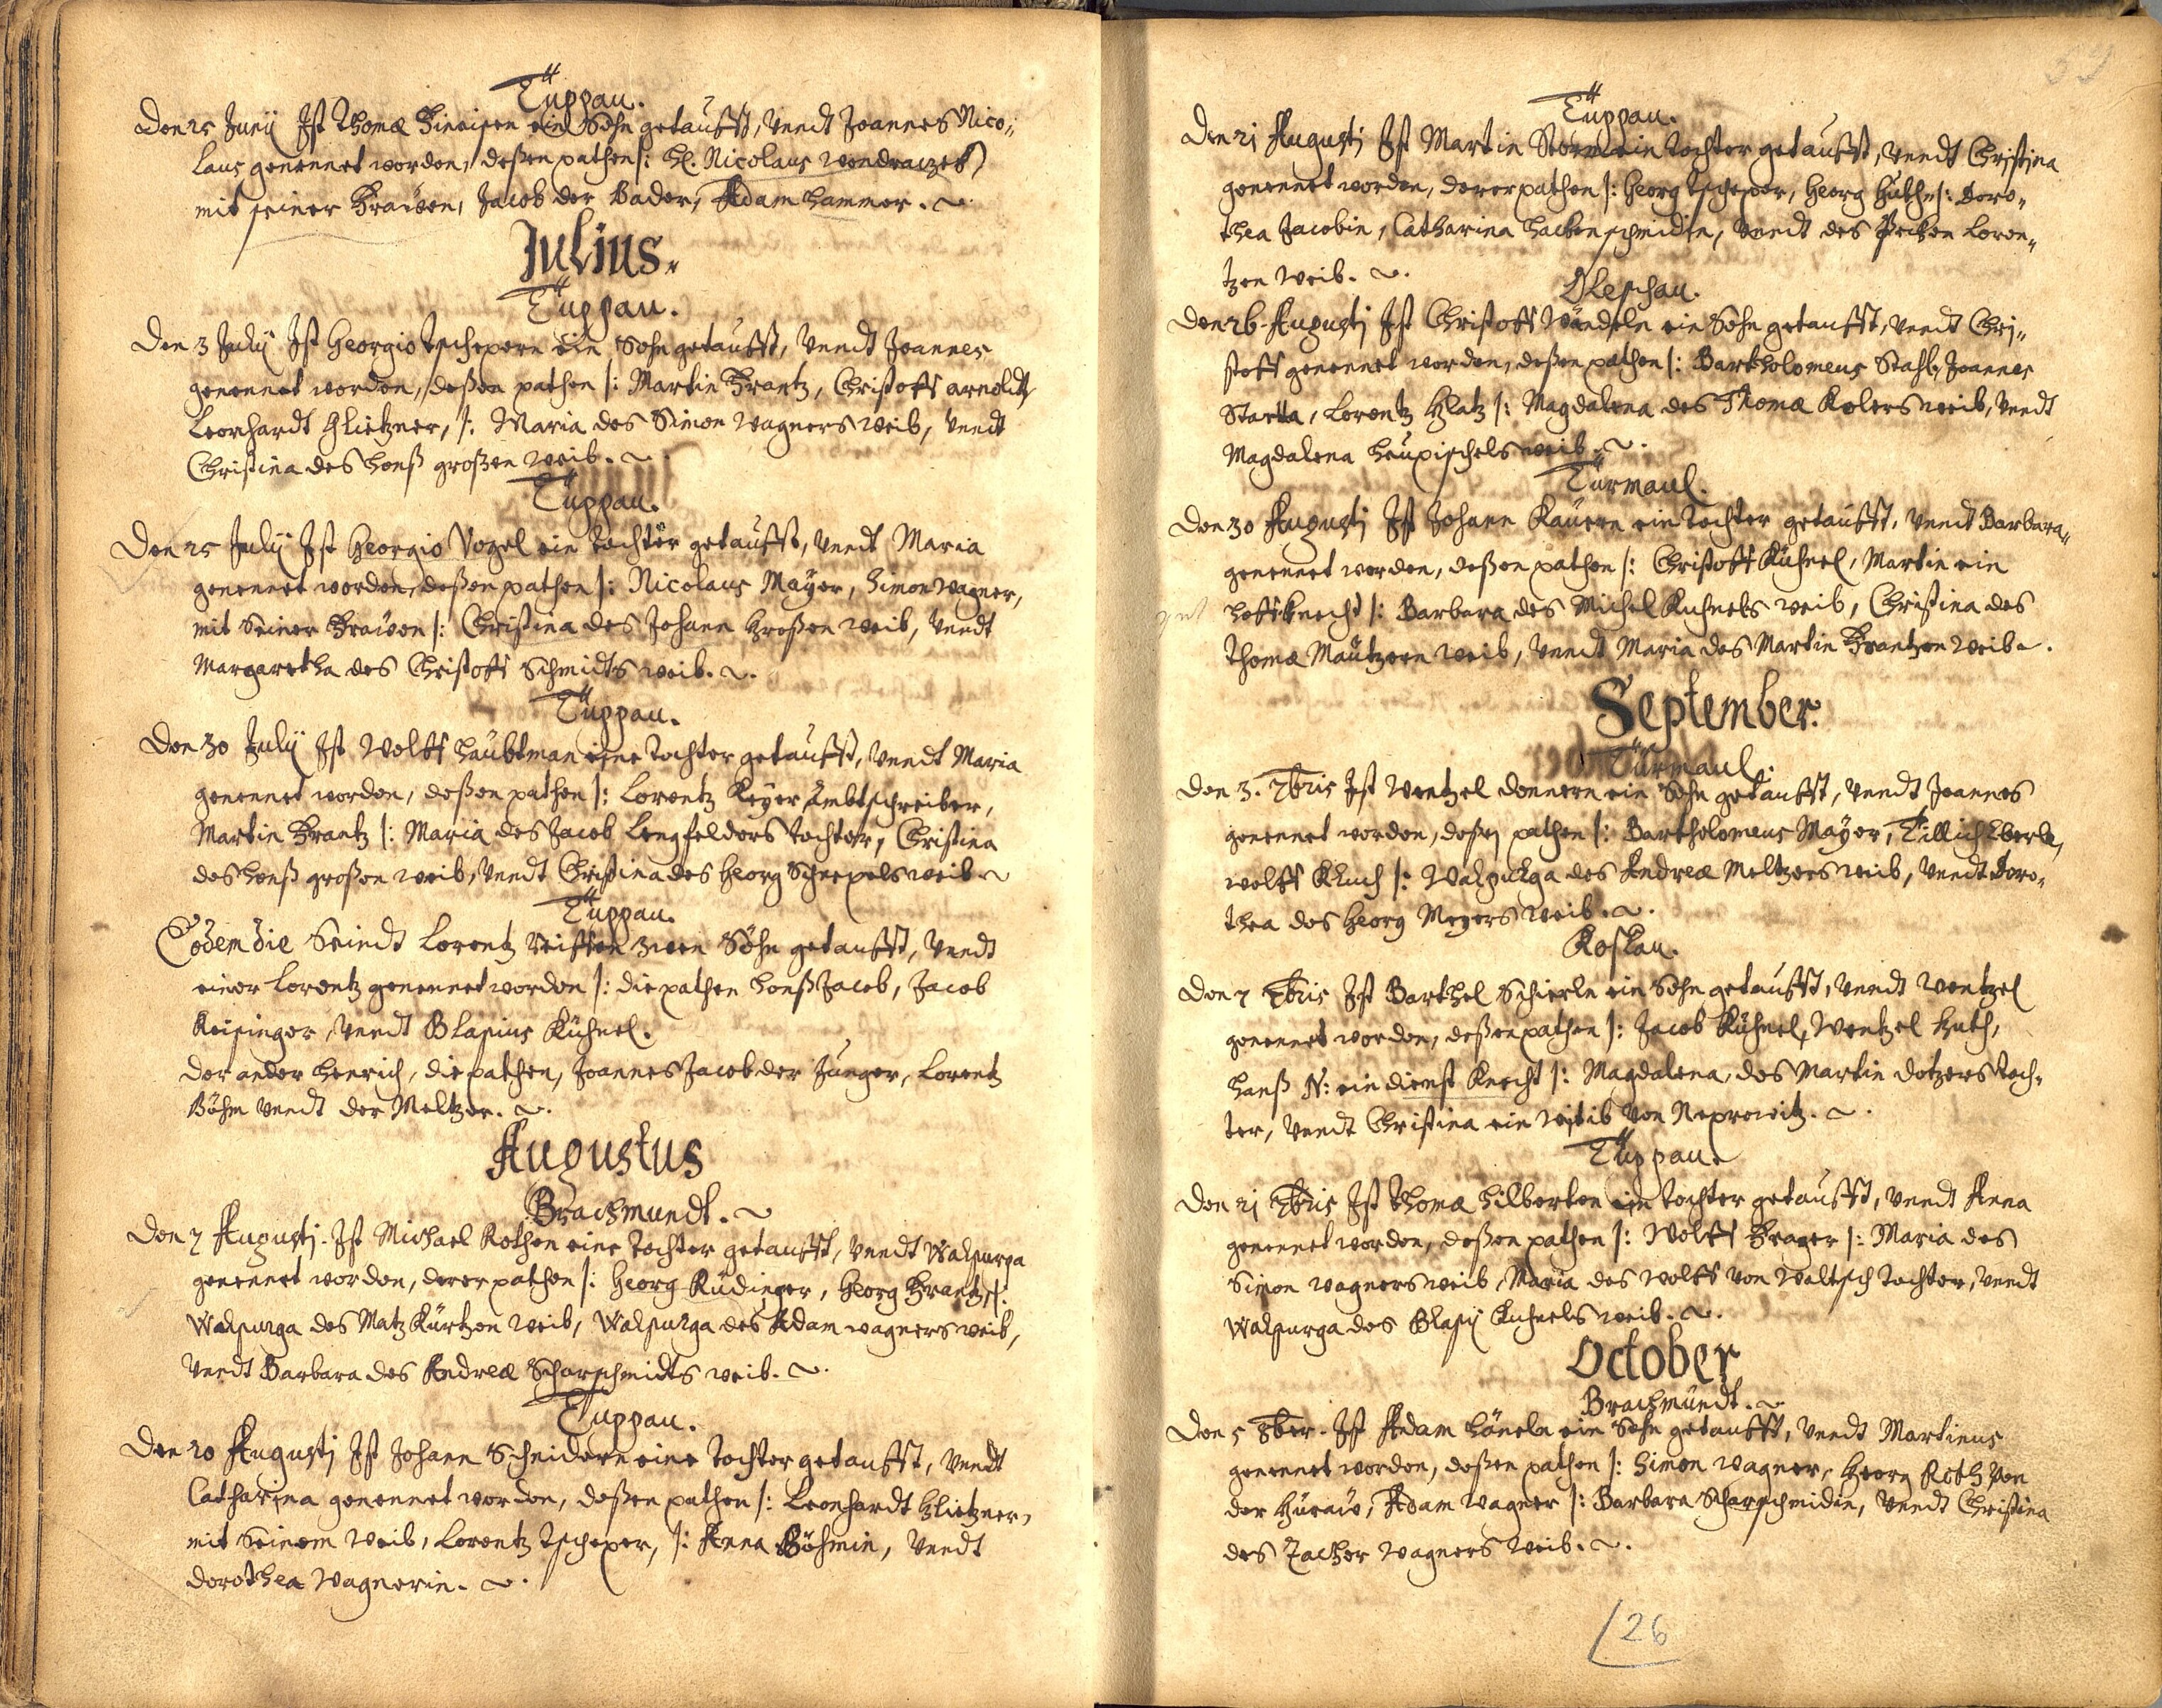 Tüppau.
Den 25 Junij Ist Thomæ ein Sohn getaufft, Vnndt Joannes Nico„
laus genennet worden, deßen pathen |: H. Nicolaus Wondraczek
mit seiner Frawen, Jacob der Bader, Adam Hammer.
Julius.
Tüppau.
Den 3 Julij Ist Georgio Tschepern ein Sohn getaufft, Vnndt Joannes
genennet worden, deßen pathen |: Martin Frantz, Christoff Arnoldt,
Leonhardt Glietzner, |: Maria des Simon Wagners Weib, Vnndt
Christina des Honß großen Weib.
Tüppau.
Den 25 Julij Ist Georgio Vogel ein Tochter getaufft, Vnndt Maria
genennet worden, deßen pathen |: Nicolaus Mayer, Simon Wagner,
mit Seiner Frawen |: Christina des Johann Großen Weib, Vnndt
Margaretha des Christoff Schmidts Weib.
Tüppau.
Den 30 Julij Ist Wolff Haubtman eine Tochter getaufft, Vnndt Maria
genennet worden, deßen pathen |: Lorentz Keyer Ambtschreiber,
Martin Frantz |: Maria des Jacob Lengfelders Tochter, Christina
des Honß großen Weib, Vnndt Christina des Georg Schnepels Weib
Tüppau.
Eodem die Seindt Lorentz zwen Söhn getaufft, Vnndt
einer Lorentz genennet worden |: die pathen Honß Jacob, Jacob
Reisinger, Vnndt Blasius Kühnel.
Der ander Henrich, die pathen, Joannes Jacob der Junger, Lorentz
Böhm Vnndt der Meltzer.
Augustus
Brachmundt.
Den 7 Augustj. Ist Michael Rothen eine Tochter getaufft, Vnndt Walpurga
genennet worden, derer pathen |: Georg Rüdinger, Georg Frantz |:
Walpurga des Matz Kürtzen Weib, Walpurga des Adam Wagners Weib,
Vnndt Barbara des Andreæ Scharschmidts Weib.
Tuppau.
Den 20 Augustj Ist Johann Schneidern eine Tochter getaufft, Vnndt
Catharina genennet worden, deßen pathen |: Leonhardt Glietzner,
mit Seinem Weib, Lorentz Tscheper, |: Anna Böhmin, Vnndt
Dorothea Wagnerin.
Tüppau.
Den 21 Augustj Ist Martin Storm ein Tochter getaufft, Vnndt Christina
genennet worden, derer pathen |: Georg Tscheper, Georg Huth |: Doro„
thea Jacobin, Catharina Hackenschmidin, Vnndt des Loren„
tzen Weib.
Oleschau.
Den 26 Augustj Ist Christoff Wändeln ein Sohn getaufft, Vnndt Chri„
stoff genennet worden, deßen pathen |: Bartholomeus Stahl, Joannes
Starka, Lorentz Glatz |: Magdalena des Thomæ Kolers Weib, Vnndt
Magdalena Weib.
Türmaul.
Den 30 Augustj Ist Johann Kauern ein Tochter getaufft, Vnndt Barbara„
genennet worden, deßen pathen |: Christoff Kühnel, Martin ein
Hoffknecht |: Barbara des Michel Kuhnels Weib, Christina des
Thomæ Mautzern Weib, Vnndt Maria des Martin Frantzen Weib.
September.
Türmaul.
Den 3. 7bris Ist Wentzel Donnern ein Sohn getaufft, Vnndt Joannes
genennet worden, deßen pathen |: Bartholomeus Mayer, Tillich Eberle,
Wolff Kluch |: Walpurga des Andreæ Meltzers Weib, Vnndt Doro„
thea des Georg Meyers Weib.
Koslau.
Den 7 7bris Ist Barthel Schierln ein Sohn getaufft, Vnndt Wentzel
genennet worden, deßen pathen |: Jacob Kühnel, Wentzel Huth,
Hanß N: ein dienst Knecht |: Magdalena, des Martin Dotzers Toch„
ter, Vnndt Christina ein Weib Von Neprowitz.
Tüppau.
Den 21 7bris Ist Thomæ Hilberten ein Tochter getaufft, Vnndt Anna
genennet worden, deßen pathen |: Wolff Frager |: Maria des
Simon Wagners Weib, Maria des Wolff Von Waltsch Tochter, Vnndt
Walpurga des Blasij Kuhnels Weib.
October
Brachmündt.
Den 5 8ber. Ist Adam Häneln ein Sohn getaufft, Vnndt Martinus
genennet worden, deßen pathen |: Simon Wagner, Georg Roth Von
der, Adam Wagner |: Barbara Scharschmidin, Vnndt Christina
des Zacher Wagners Weib.
26